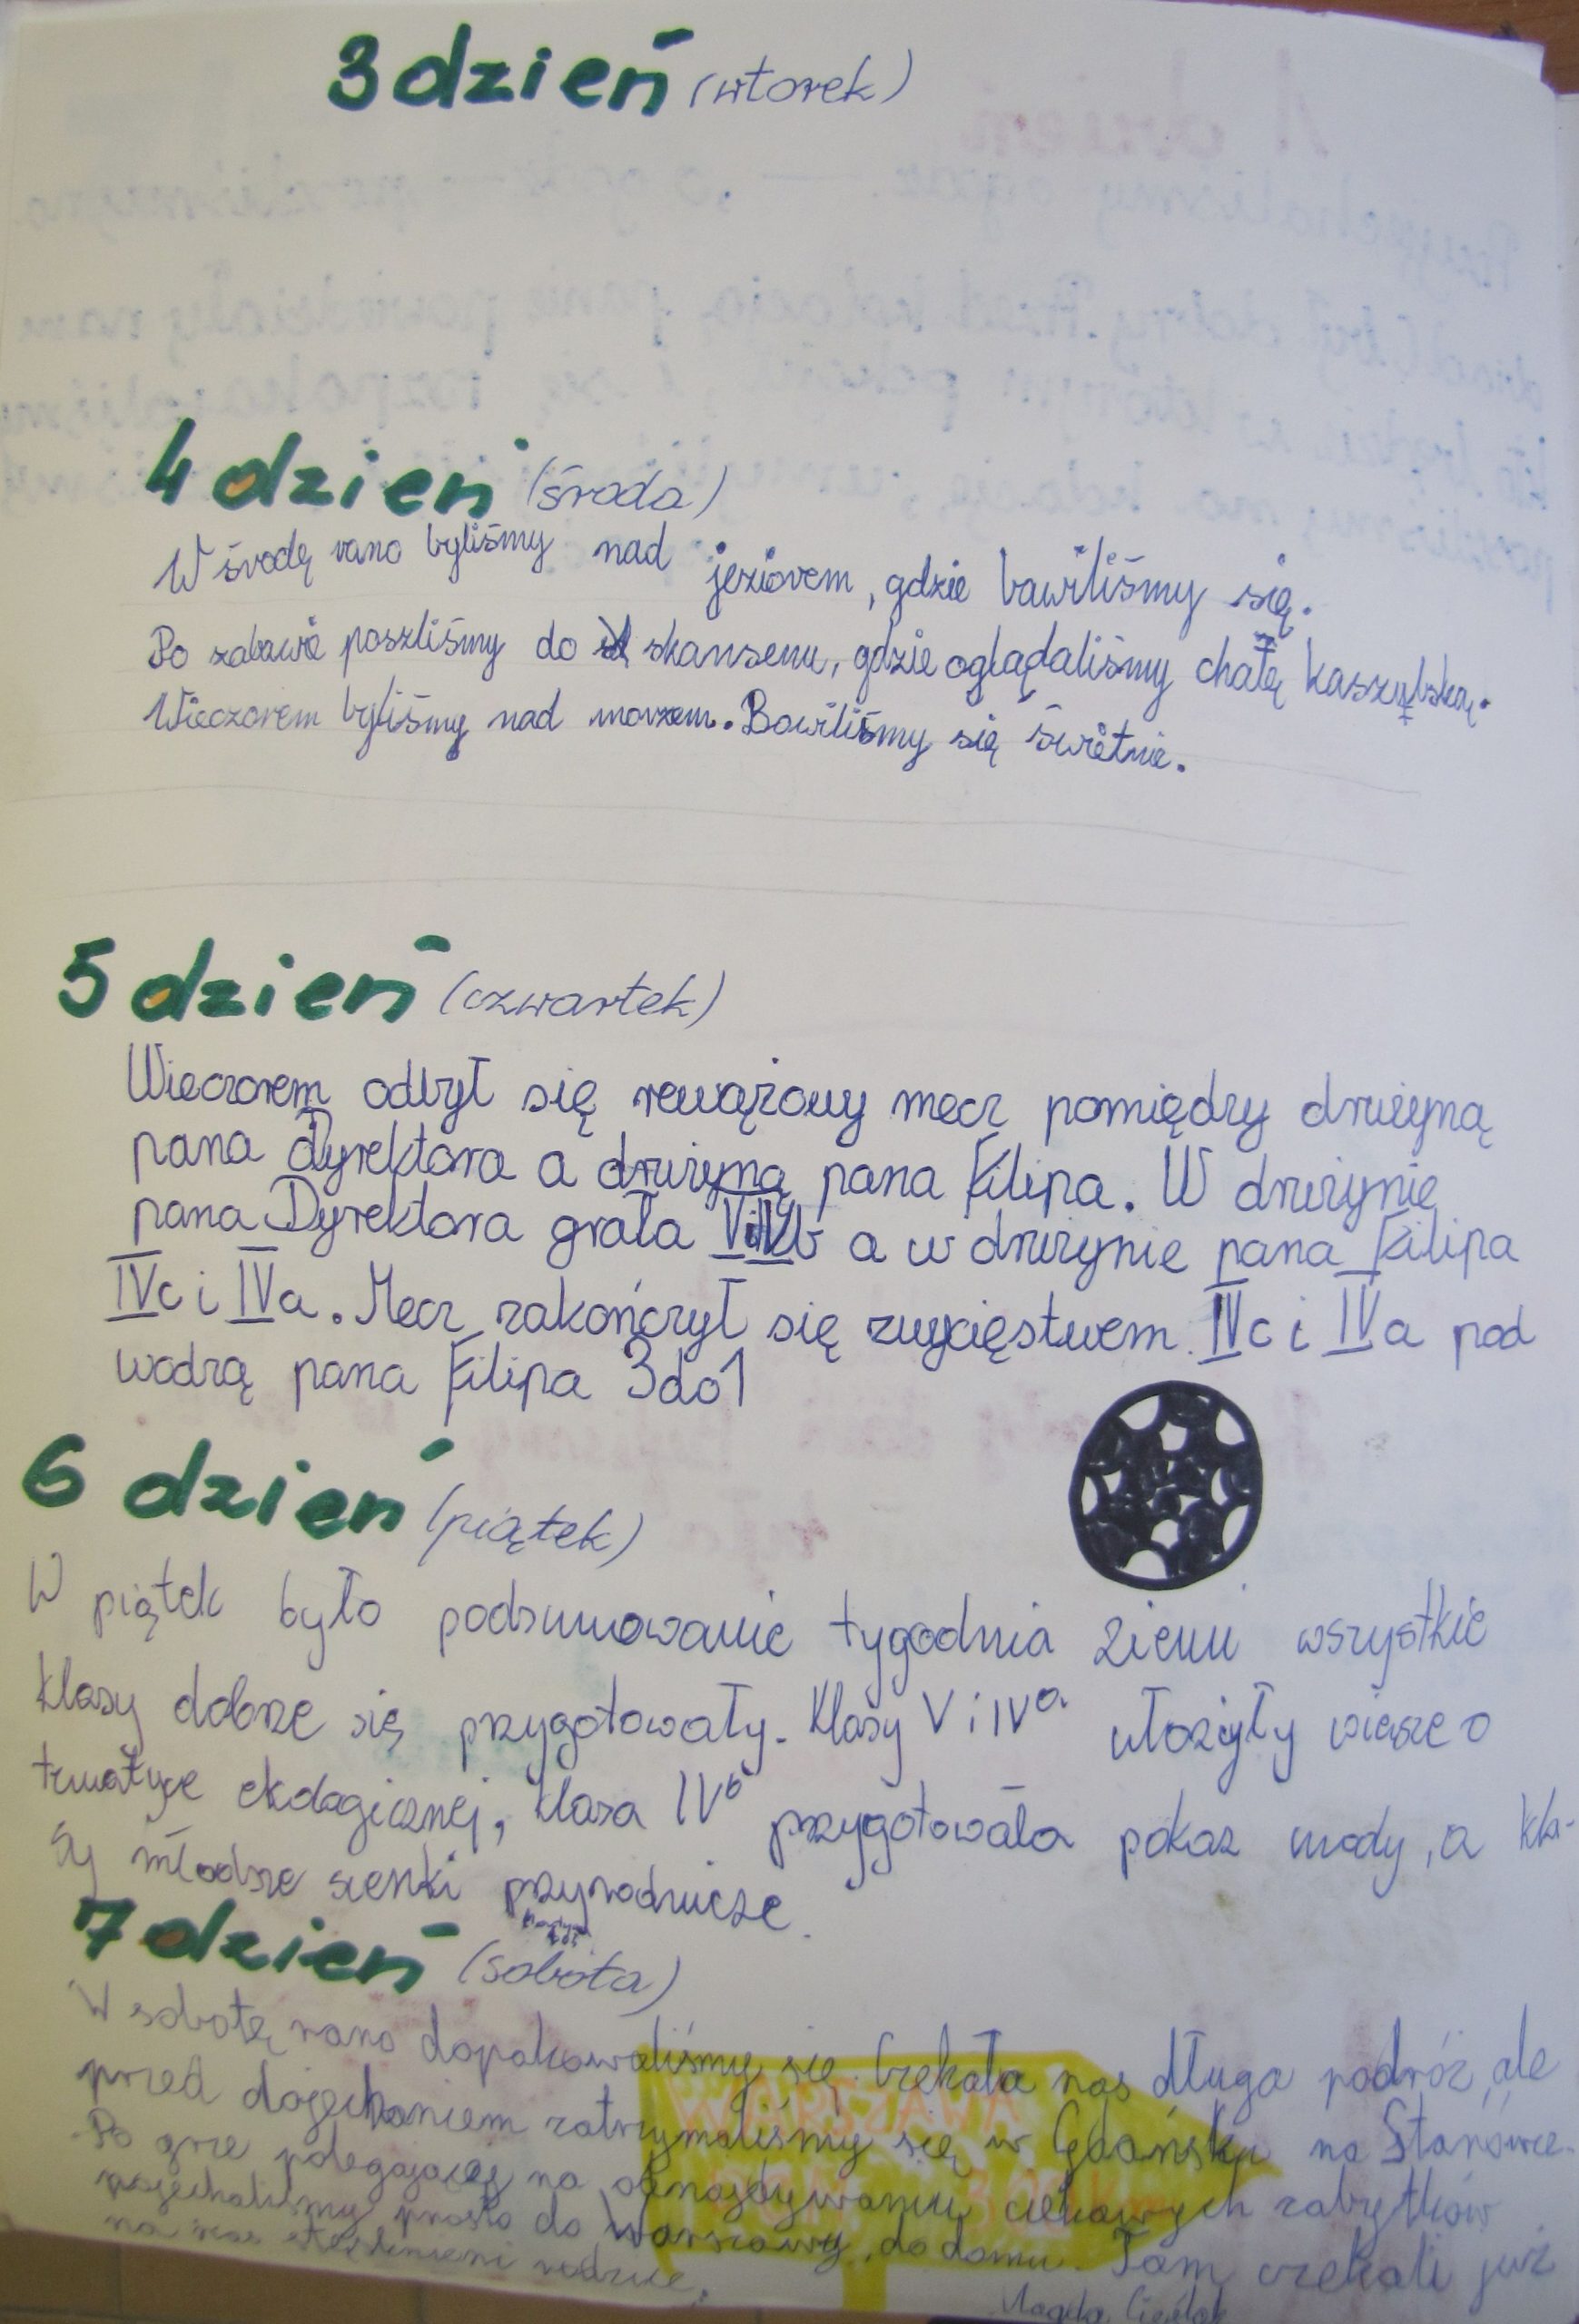 3 dzień (wtorek)
4 dzień (środa)
W środę rano byliśmy nad jeziorem, gdzie bawiliśmy się.
Po zabawie poszliśmy do skansenu, gdzie oglądaliśmy chatę kaszubską.
Wieczorem byliśmy nad morzem. Bawiliśmy się świetnie.
5 dzień (czwartek)
Wieczorem odbył się rewążowy mecz pomiędzy drużyną
pana Dyrektora a drużyną pana Filipa. W drużynie
pana Dyrektora grała V i IVb a w drużynie pana Filipa
IVc i IVa. Mecz zakończył się zwycięstwem IVc i IVa pod
wodzą pana Filipa 3do1
6 dzień (piątek)
W piątek było podsumowanie tygodnia ziemi wszystkie
klasy dobrze się przygotowały. Klasy V i IVa ułożyły wiersze o
tematyce ekologicznej, klasa IVb przygotowała pokaz mody, a kla-
sy młodsze scenki przyrodnicze.
7 dzień (sobota)
W sobotę rano dopakowaliśmy się. Czekała nas długa podróż, ale
przed dojechaniem zatrzymaliśmy się w Gdańsku na Starówce.
Po grze polegającej na odnajdywaniu ciekawych zabytków
pojechaliśmy prosto do Warszawy, do domu. Tam czekali już
na nas stęsknieni rodzice.
WARSZAWA
Magda Cieślak